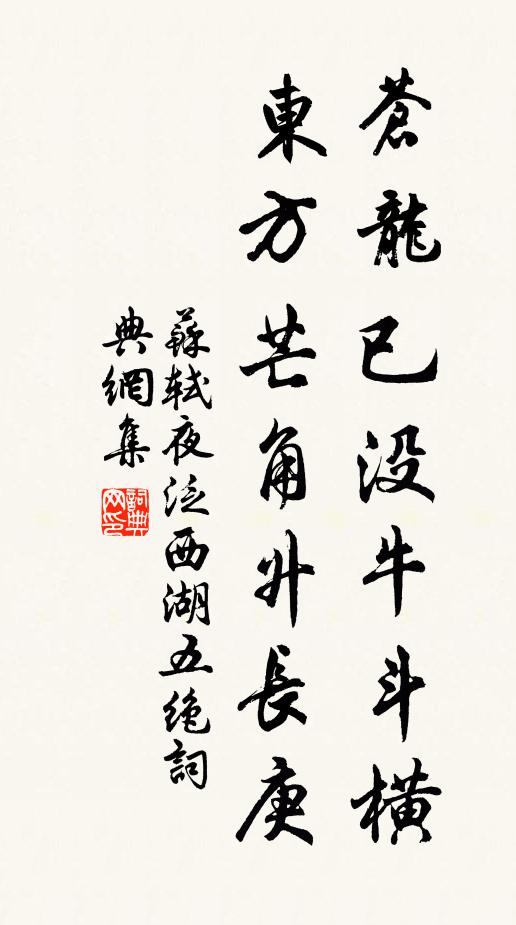 蒼龍已没牛斗橫
東方芒角升長庚
蘇軾夜泛西湖五絶詞
典網集
詞典
网印